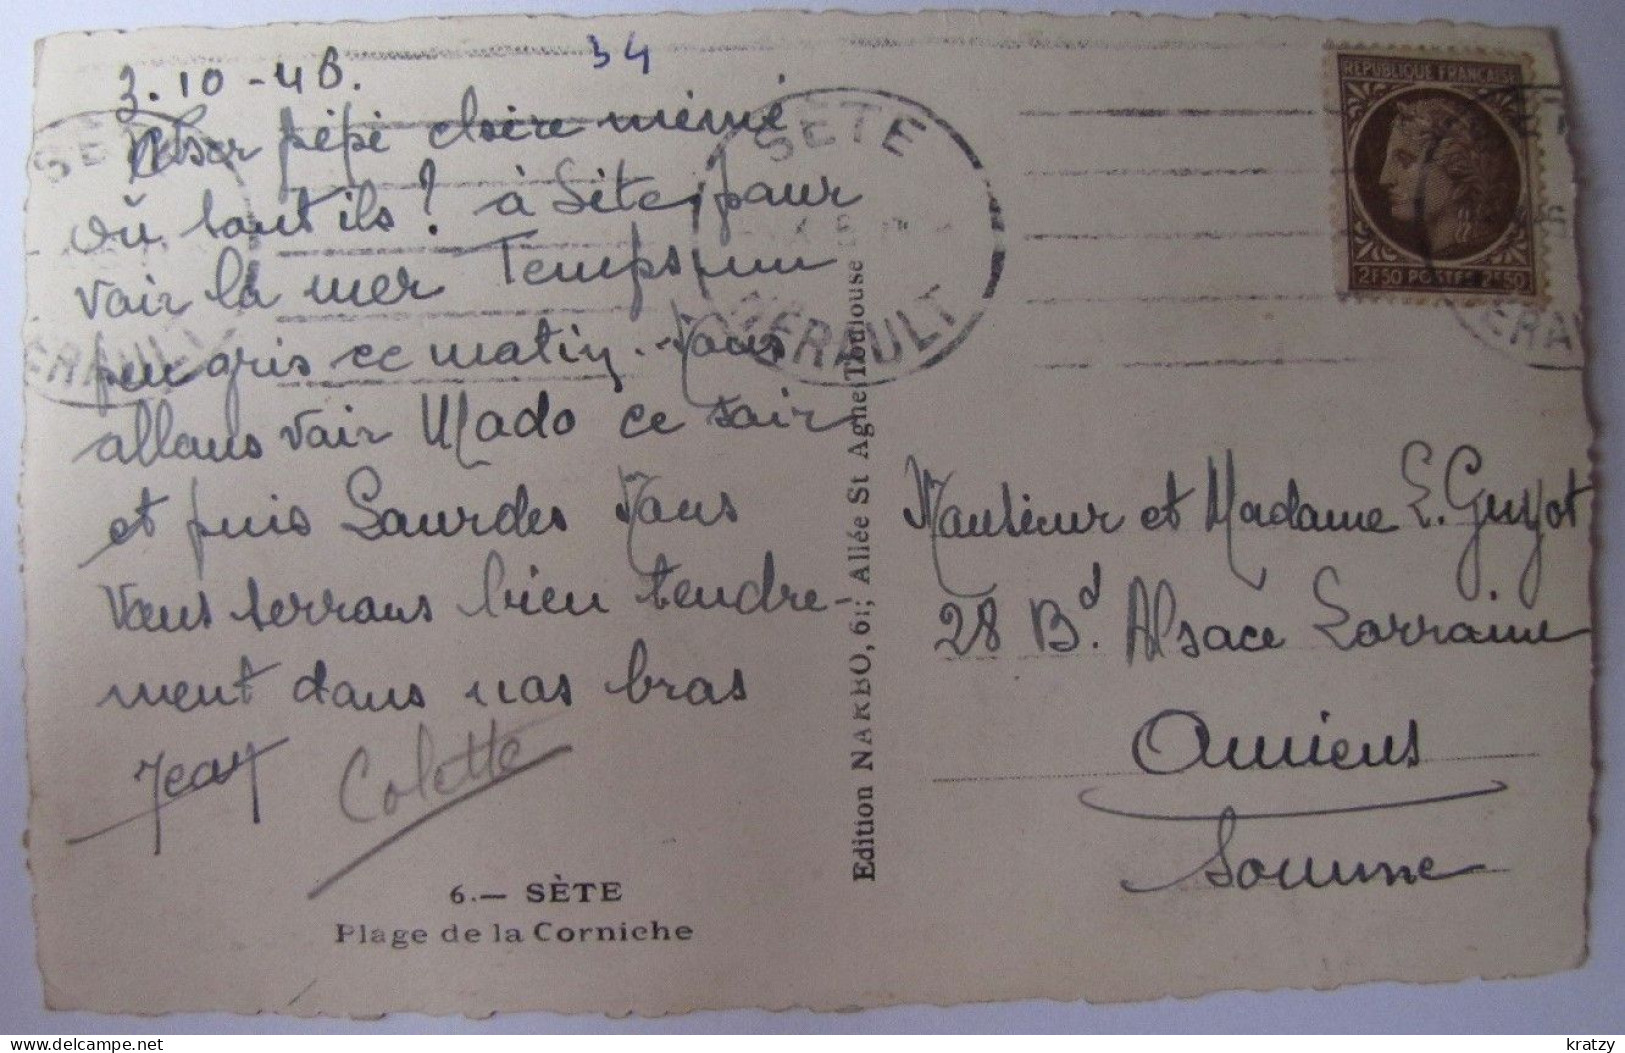 34
3.10-48.
Cher pépé chère mémé
où sont ils ? à Sète, pour
voir la mer Temps un
peu gris ce matin. Nous
allons voir Mado ce soir
et puis Lourdes Nous
vous serrons bien tendre-
ment dans nos bras
Jean Colette
6.— SÈTE
Plage de la Corniche
Edition NARBO, 61, Allée St Agne Toulouse
SETE
HERAULT
SETE
HERAULT
REPUBLIQUE FRANÇAISE
2F50 POSTES 2F50
ERAU
Monsieur et Madame E. Guyot
28 Bd. Alsace Lorraine
Amiens
Somme
kratzy